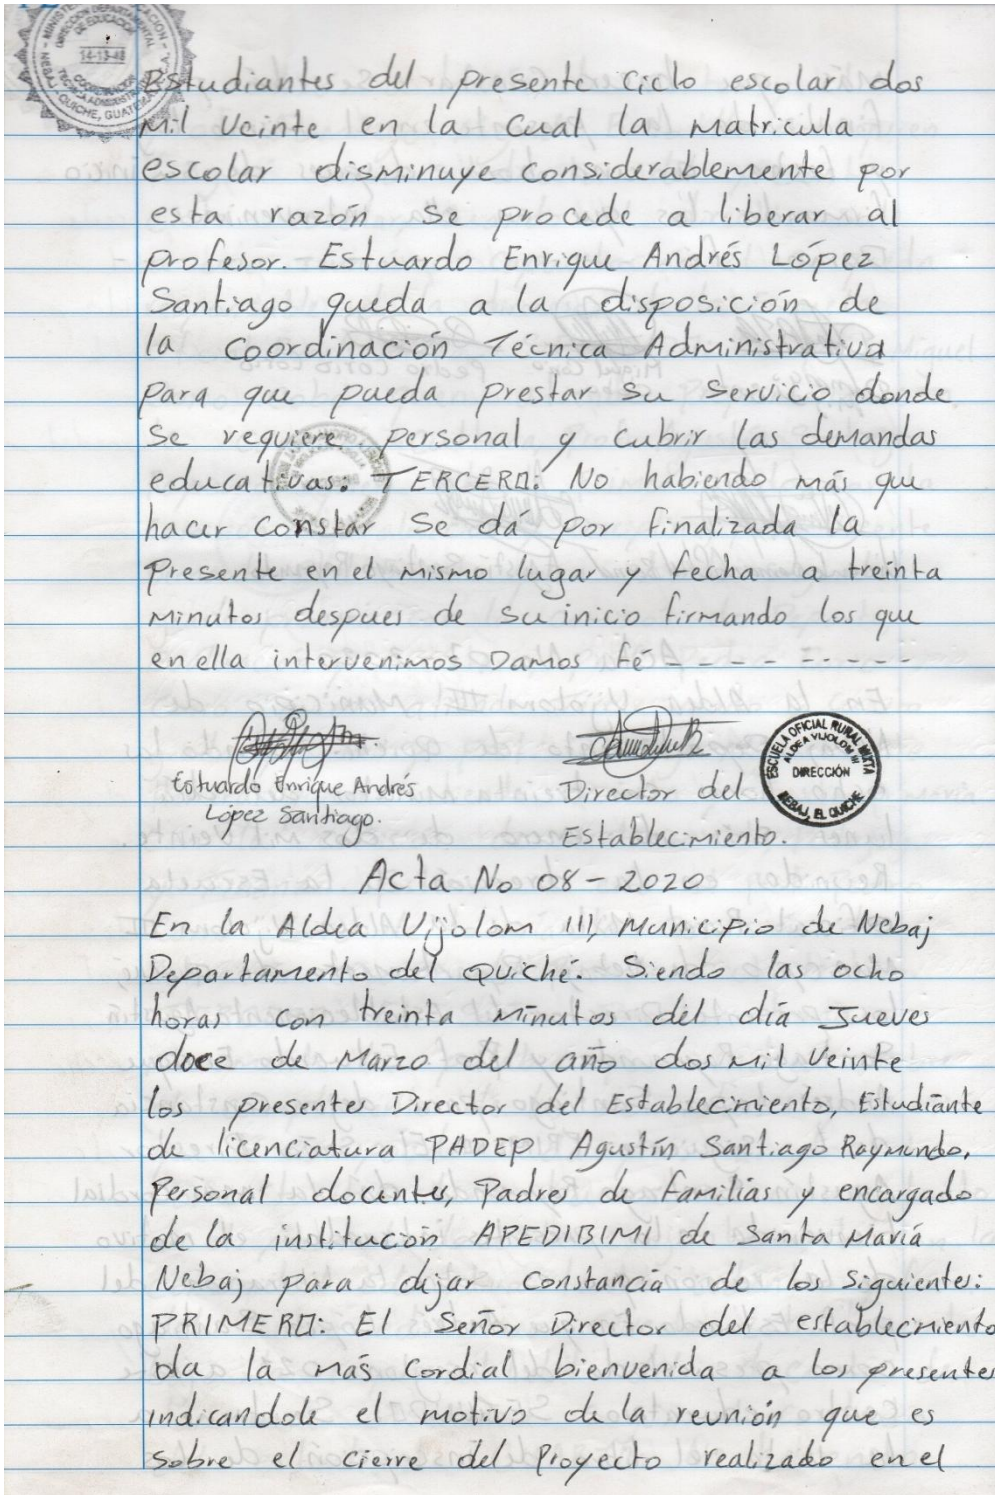 MINISTERIO DE EDUCACIÓN
DIRECCIÓN DEPARTAMENTAL DE EDUCACIÓN
14-13-48
COORDINACIÓN TÉCNICA ADMINISTRATIVA
NEBAJ - QUICHE, GUATEMALA, C.A.
Estudiantes del presente Ciclo escolar dos
Mil Veinte en la Cual la Matricula
escolar disminuye considerablemente por
esta razón se procede a liberar al
profesor. Estuardo Enrique Andrés López
Santiago queda a la disposición de
la Coordinación Técnica Administrativa
para que pueda prestar su servicio donde
se requiere personal y cubrir las demandas
educativas: TERCERO: No habiendo más que
hacer Constar se dá por finalizada la
presente en el mismo lugar y fecha a treinta
Minutos despues de su inicio firmando los que
en ella intervenimos Damos fé - - - - - - - -
Estuardo Enrique Andrés
López Santiago.
Director del
Establecimiento.
ESCUELA OFICIAL RURAL MIXTA
ALDEA VIJOLOM III
DIRECCIÓN
NEBAJ, EL QUICHE
Acta No 08-2020
En la Aldea Vijolom III, Municipio de Nebaj
Departamento del Quiché. Siendo las ocho
horas con treinta Minutos del día Jueves
doce de Marzo del año dos Mil Veinte
los presentes Director del Establecimiento, Estudiante
de licenciatura PADEP Agustín Santiago Raymundo,
Personal docentes, Padres de familias y encargado
de la institución APEDIBIMI de Santa María
Nebaj para dejar Constancia de los siguientes:
PRIMERO: El Señor Director del establecimiento
da la más Cordial bienvenida a los presentes
indicandole el motivo de la reunión que es
sobre el cierre del Proyecto realizado en el